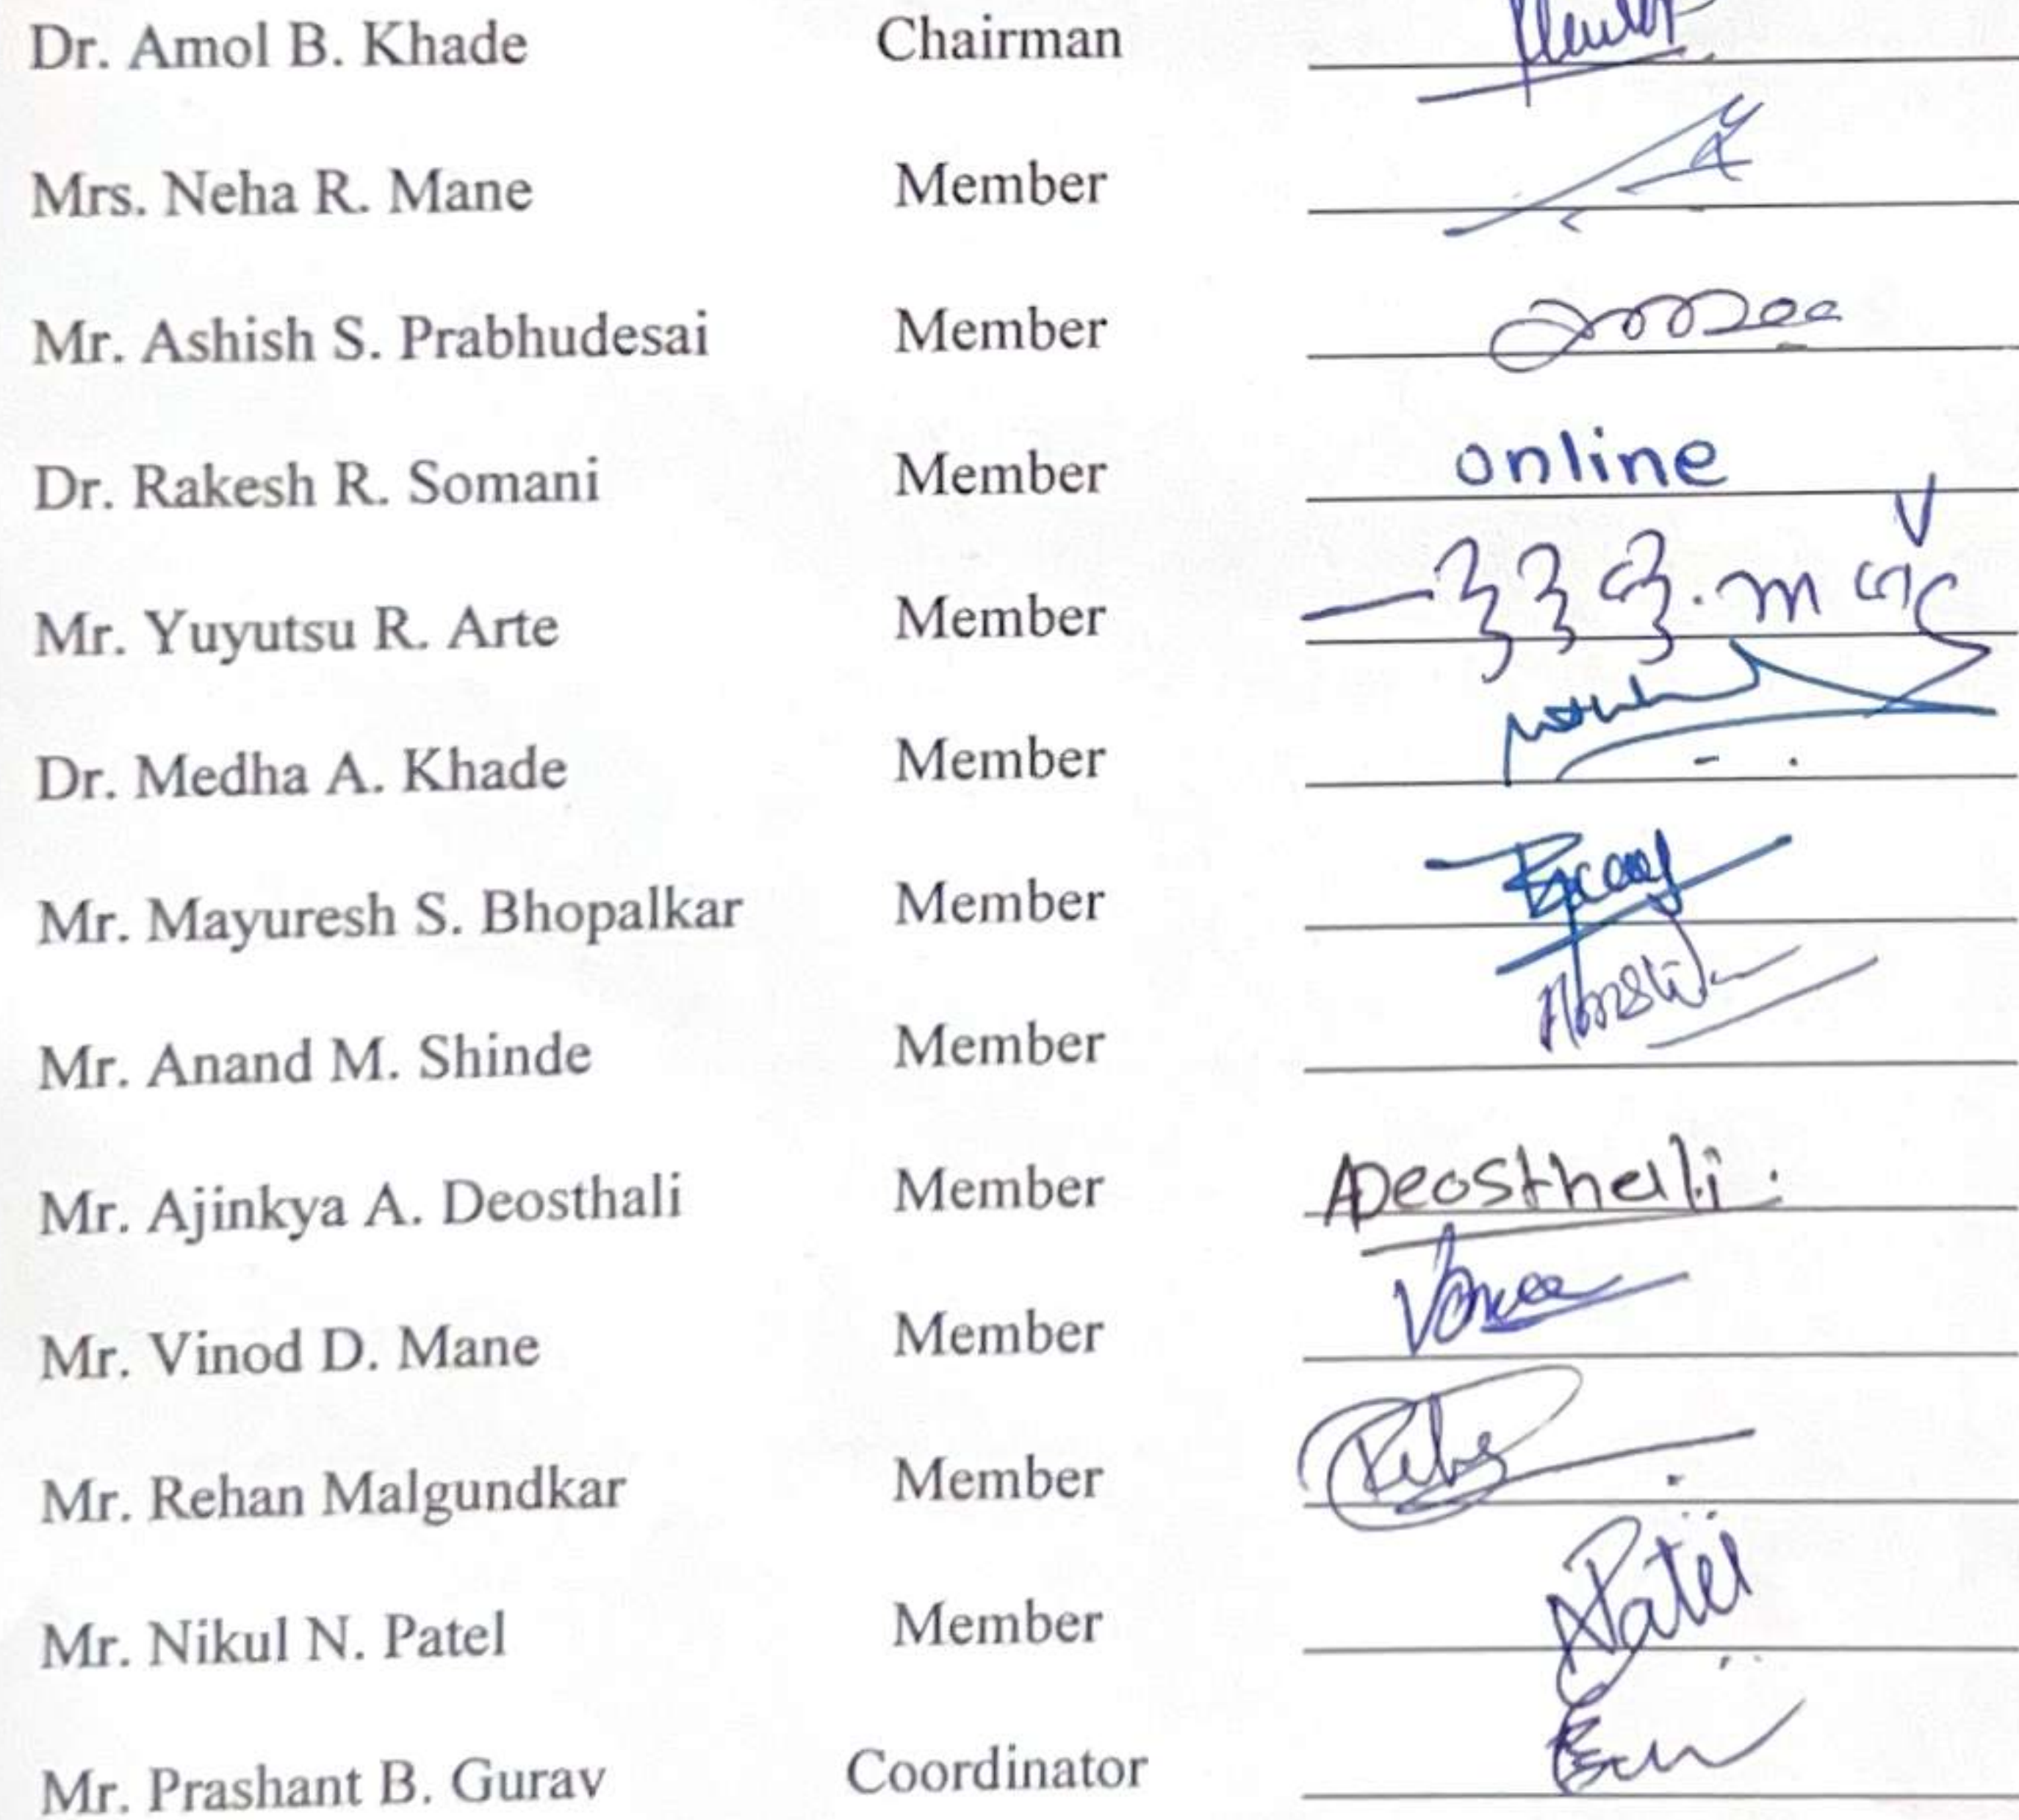 Dr. Amol B. Khade Chairman
Mrs. Neha R. Mane Member
Mr. Ashish S. Prabhudesai Member
Dr. Rakesh R. Somani Member online
Mr. Yuyutsu R. Arte Member
Dr. Medha A. Khade Member
Mr. Mayuresh S. Bhopalkar Member
Mr. Anand M. Shinde Member
Mr. Ajinkya A. Deosthali Member ADeosthali.
Mr. Vinod D. Mane Member
Mr. Rehan Malgundkar Member
Mr. Nikul N. Patel Member NPatel
Mr. Prashant B. Gurav Coordinator